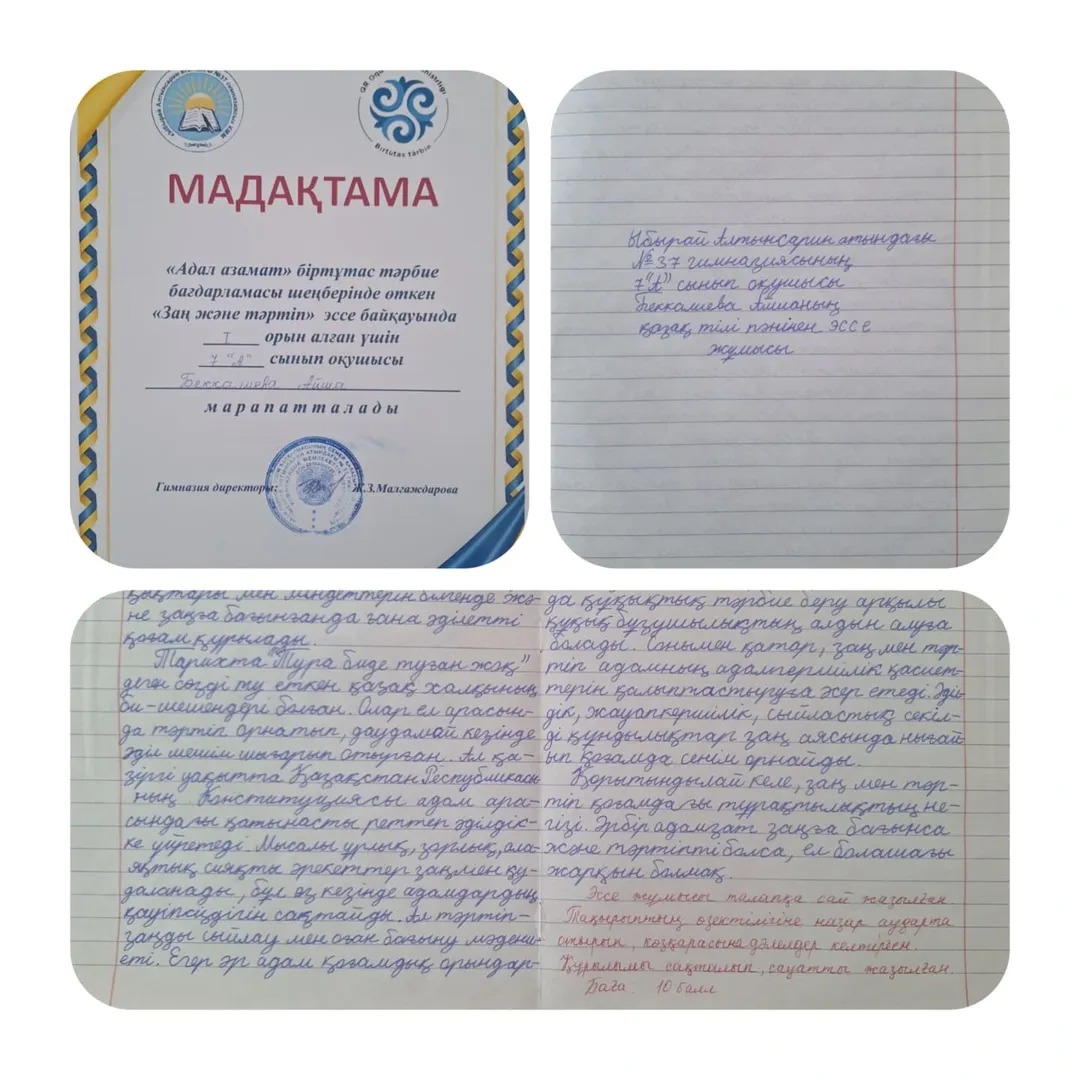 Birtutas tárbie
МАДАҚТАМА
«Адал азамат» біртұтас тәрбие
бағдарламасы шеңберінде өткен
«Заң және тәртіп» эссе байқауында
I орын алған үшін
7 "А" сынып оқушысы
Беккашева Айша
марапатталады
Гимназия директоры: Ж.З.Малгаждарова
Ыбырай Алтынсарин атындағы
№37 гимназиясының
7"А" сынып оқушысы
Беккашева Айшаның
қазақ тілі пәнінен эссе
жұмысы
қықтары мен міндеттерін білгенде жә-
не заңға бағынғанда ғана әділетті
қоғам құрылады.
Тарихта "Тура биде туған жоқ"
деген сөзді ту еткен қазақ халқының
би-шешендері болған. Олар ел арасын-
да тәртіп орнатып, даудамай кезінде
әділ шешім шығарып отырған. Ал қа-
зіргі уақытта Қазақстан Республикасы
ның Конституциясы адам ара-
сындағы қатынасты реттеп әділдік-
ке үйретеді. Мысалы ұрлық, зорлық, ала-
яқтық сияқты әрекеттер заңмен қу-
даланады, бұл өз кезінде адамдардың
қауіпсіздігін сақтайды. Ал тәртіп-
заңды сыйлау мен оған бағыну мәдени-
еті. Егер әр адам қоғамдық орындар-
да құқықтық тәрбие беру арқылы
құқық бұзушылықтың алдын алуға
болады. Сонымен қатар, заң мен тәр-
тіп адамның адамгершілік қасиет-
терін қалыптастыруға әсер етеді. Әді-
дік, жауапкершілік, сыйластық секіл-
ді құндылықтар заң аясында нығай
ып қоғамда сенім орнайды.
Қорытындылай келе, заң мен тәр-
тіп қоғамдағы тұрақтылықтың не-
гізі. Әрбір адамзат заңға бағынса
және тәртіпті болса, ел болашағы
жарқын болмақ.
Эссе жұмысы талапқа сай жазылған.
Тақырыптың өзектілігіне назар аударта
отырып, көзқарасына дәлелдер келтірген.
Құрылымы сақталып, сауатты жазылған.
Баға: 10 балл